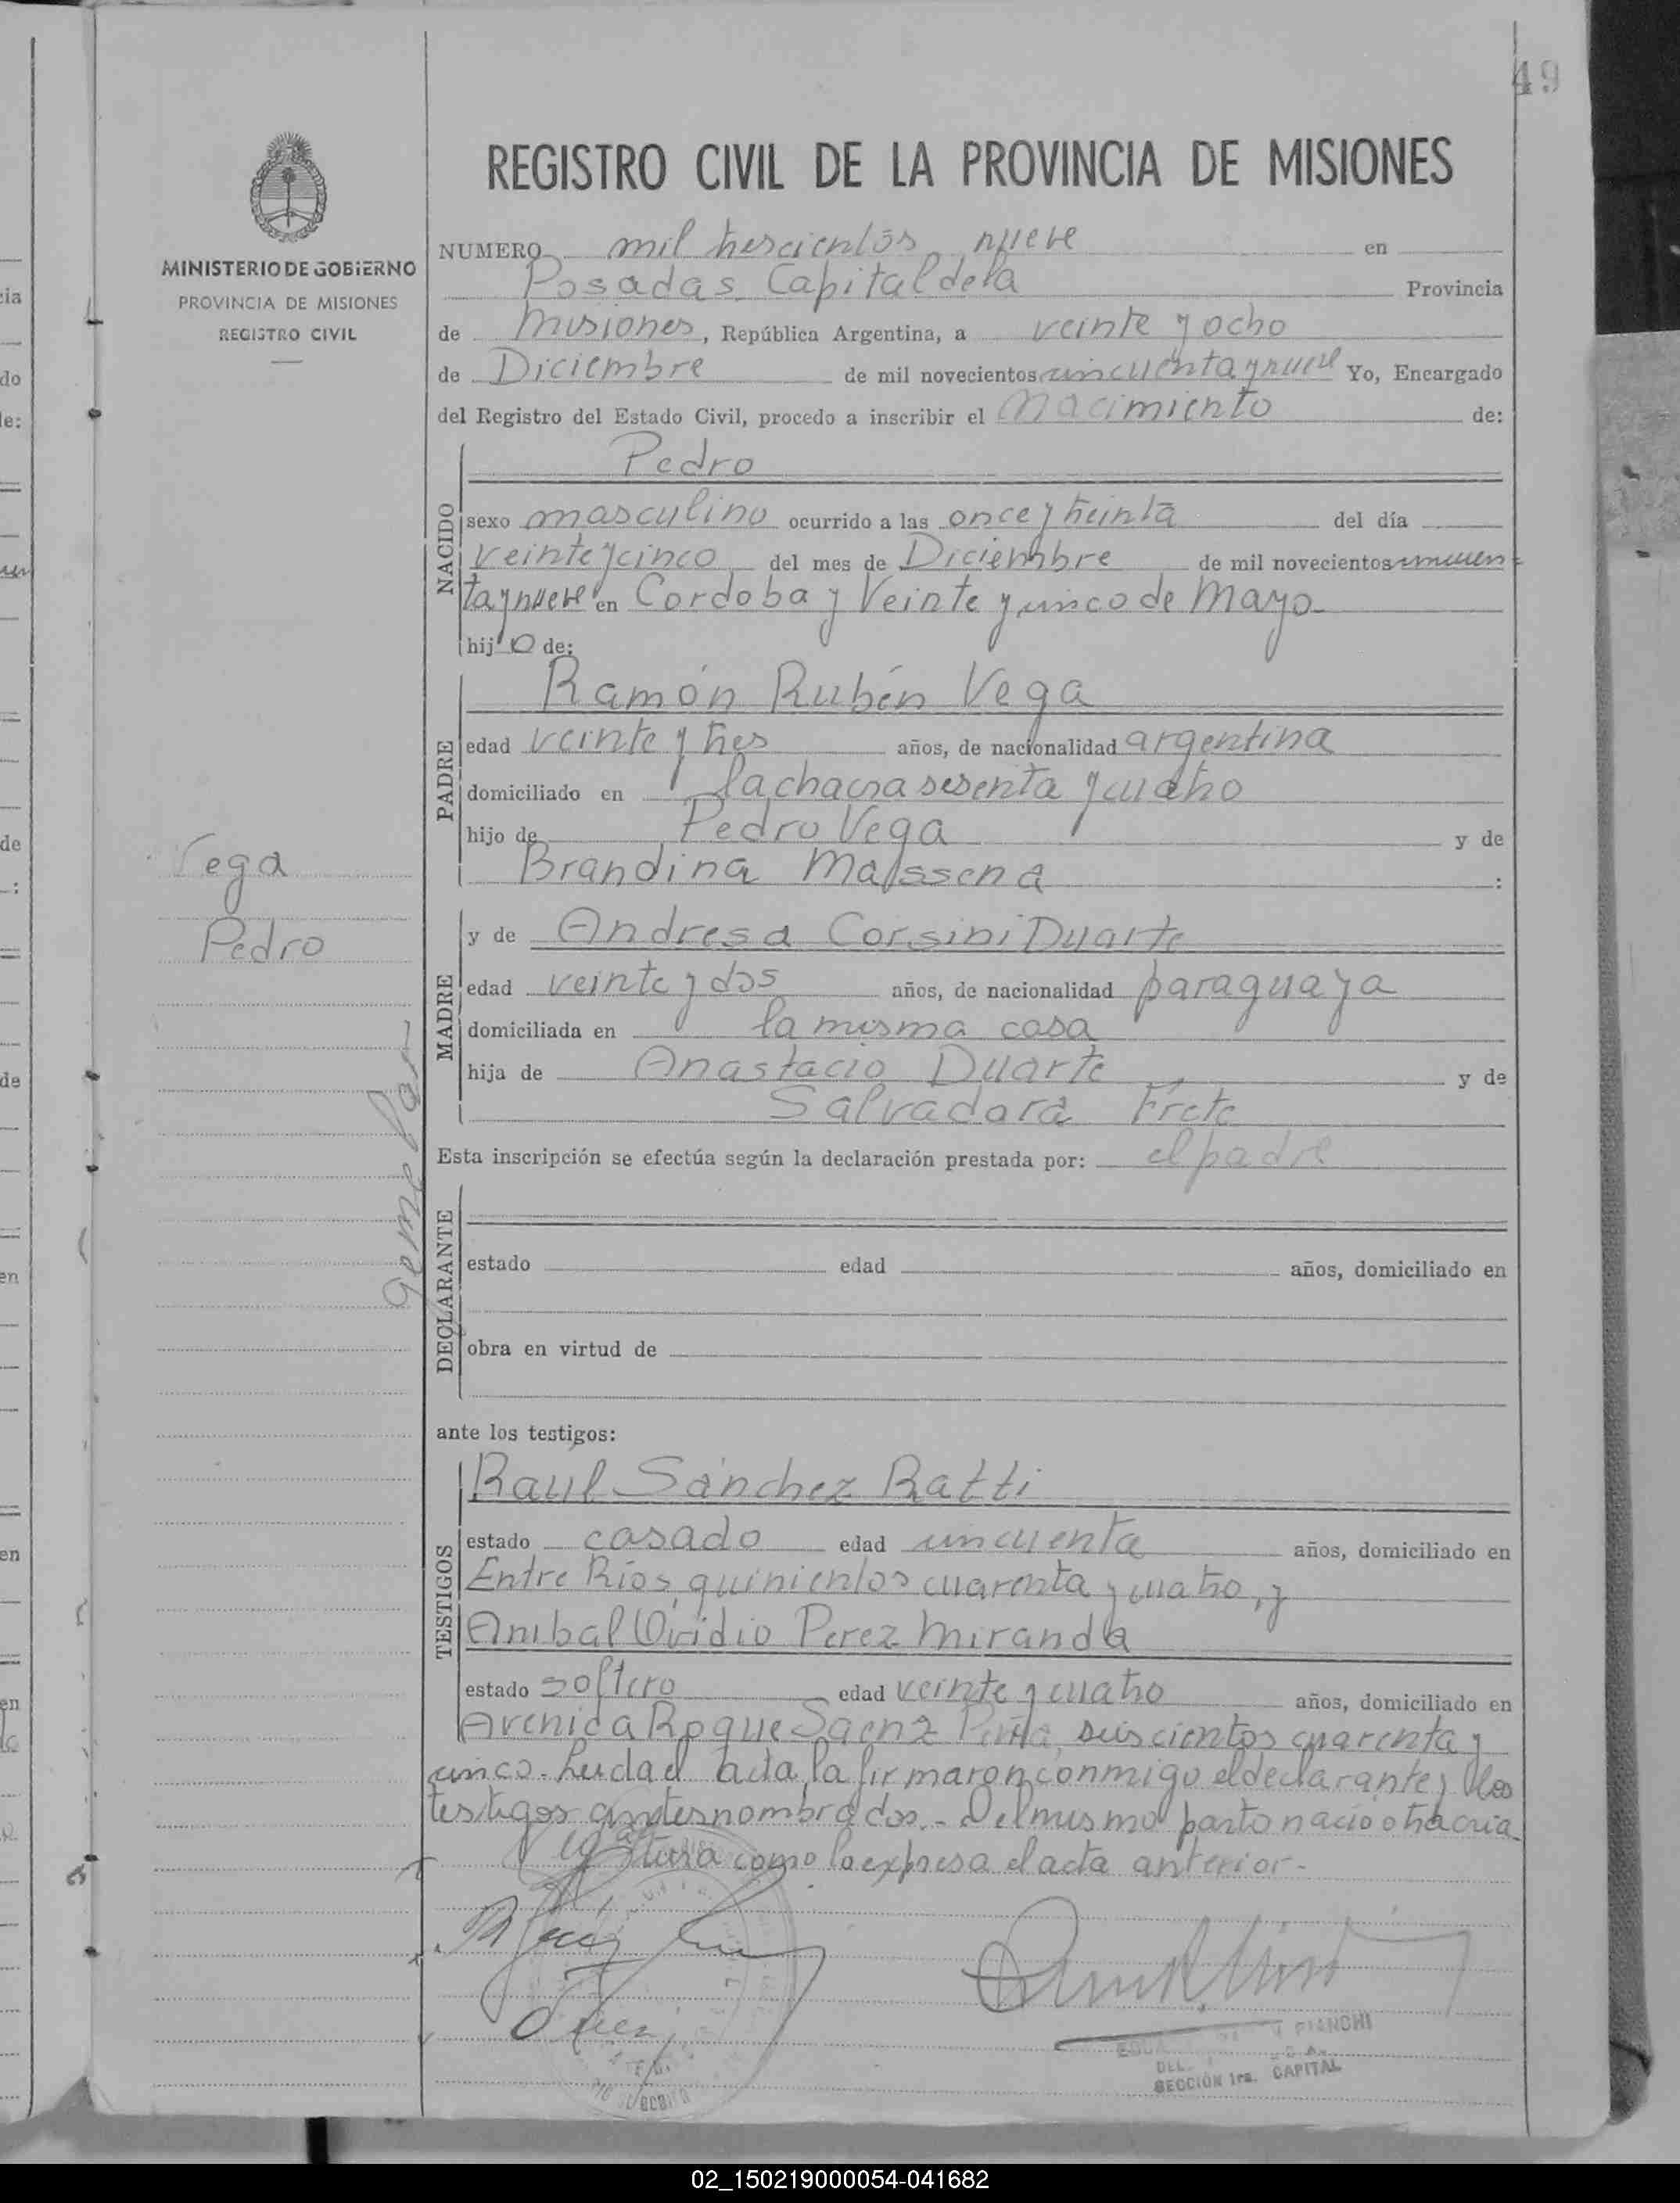 49
REGISTRO CIVIL DE LA PROVINCIA DE MISIONES
MINISTERIO DE GOBIERNO
PROVINCIA DE MISIONES
REGISTRO CIVIL
NUMERO mil trescientos nueve en
Posadas Capital de la Provincia
de Misiones, República Argentina, a veinte y ocho
de Diciembre de mil novecientos cincuenta y nueve Yo, Encargado
del Registro del Estado Civil, procedo a inscribir el nacimiento de:
NACIDO
Pedro
sexo masculino ocurrido a las once y treinta del día
veinte y cinco del mes de Diciembre de mil novecientos cincuen
ta y nueve en Cordoba y Veinte y cinco de Mayo
hijo de:
PADRE
Ramón Rubén Vega
edad veinte y tres años, de nacionalidad argentina
domiciliado en la chacra sesenta y cuatro
hijo de Pedro Vega y de
Brandina Maissena :
Vega
Pedro
Gemelar
MADRE
y de Andresa Corsini Duarte
edad veinte y dos años, de nacionalidad paraguaya
domiciliada en la misma casa
hija de Anastacio Duarte y de
Salvadora Frete
Esta inscripción se efectúa según la declaración prestada por: el padre
DECLARANTE
estado edad años, domiciliado en
obra en virtud de
ante los testigos:
TESTIGOS
Raul Sánchez Ratti
estado casado edad cincuenta años, domiciliado en
Entre Ríos, quinientos cuarenta y cuatro, y
Anibal Ovidio Perez Miranda
estado soltero edad veinte y cuatro años, domiciliado en
Avenida Roque Saenz Peña, seiscientos cuarenta y
cinco. Leida el acta, la firmaron conmigo el declarante y los
testigos antes nombrados.- Del mismo parto nació otra cria
como lo expresa el acta anterior.-
BIANCHI
SECCIÓN 1ra. CAPITAL
02_150219000054-041682